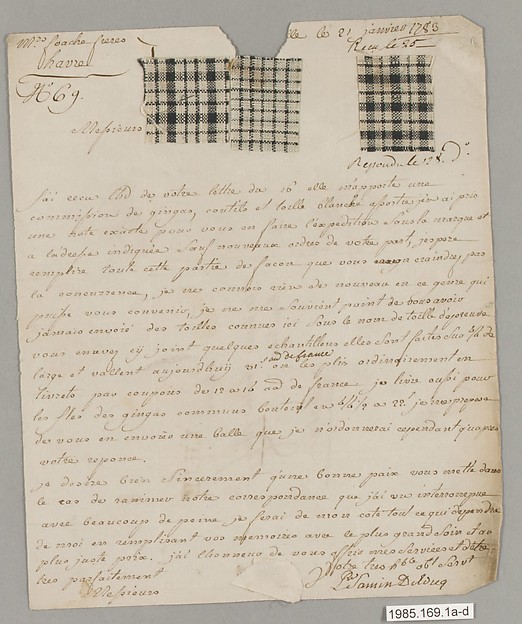 Mrs foache freres
havre
le 21 janvier 1783
Recu le 25
N° 69.
Repondu le 128 do.
Messieurs
J'ai recu l'hd de votre lettre du 16e elle m'apporte une
commission de gingas, contils et toille blanche a portie j'en ai pris
une note exacte pour vous en faire l'expedition sous la marque et
a ladresse indiquée sauf nouveaux ordres de votre part, jespere
remplire toute cette partie de facon que vous craindrez pas
la concurrence, je ne connois rien de nouveau en ce genre qui
puisse vous convenir, je ne me souvient point de vous avoir
jamais envoié des toilles connues ici sous le nom de toille
vous envoy cy joint quelques echantillons elles sont faites sur 5/8 de
large et vallent aujourdhuy on les plis ordinairement en
livrets par coupons de 12 a 16 de france je livre aussi pour
les isles des gingas communs je me propose
de vous en envoier une balle que je n'ordonnerai cependant qu'apres
votre reponce.
je desire bien sincerement qu'une bonne paix vous mette dans
le cas de ranimer notre correspondance que j'ai vu interrompue
avec beaucoup de peine je ferai de mon coté tout ce qui dependra
de moi en remplissant vos memoires avec le plus grand soin et au
plus juste prix. j'ai l'honneur de vous offrir mes services et d'etre
tres parfaitement
Messieurs
Votre tres hble obt servt
1985.169.1a-d